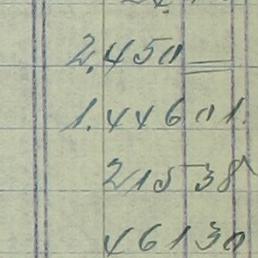 2.450 =
1.446 01.
215 38
461 30